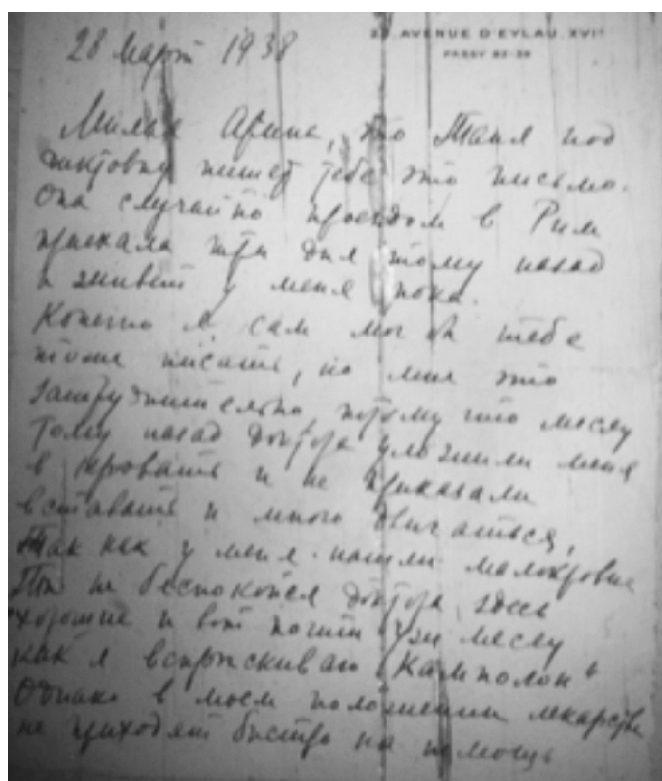 28 Март 1938
AVENUE D'EYLAU. XVIe
PASSY
Милая Арина, это Таня под
диктовку пишет тебе это письмо.
Она случайно проездом в Рим
приехала три дня тому назад
и живет у меня пока.
Конечно я сам мог бы тебе
тоже писать, но мне это
затруднительно, потому что месяц
тому назад доктора уложили меня
в кровать и не приказали
вставать и много двигаться,
так как у меня нашли малокровие
Ты не беспокойся доктора здесь
хорошие и вот почти уже месяц
как я вспрыскиваю "Камполон"
Однако в моем положении лекарства
не приходят быстро на помощь